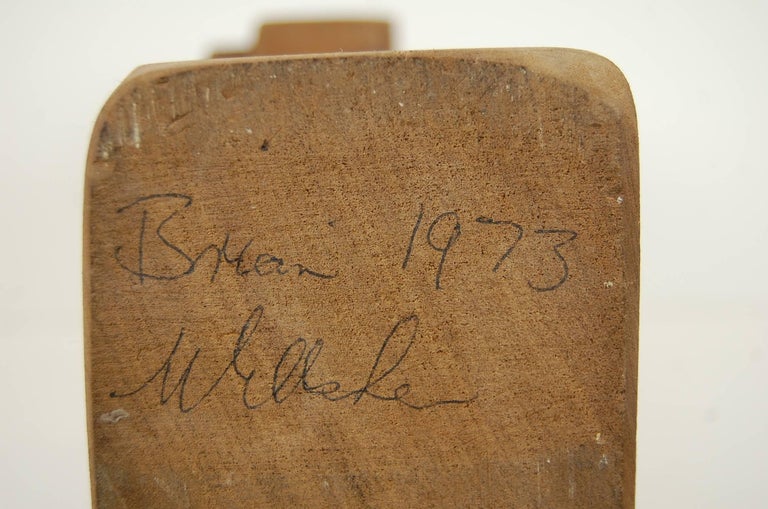 Brian 1973
Willsher